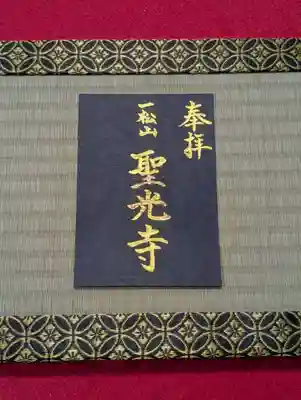 奉拝
一松山
聖光寺